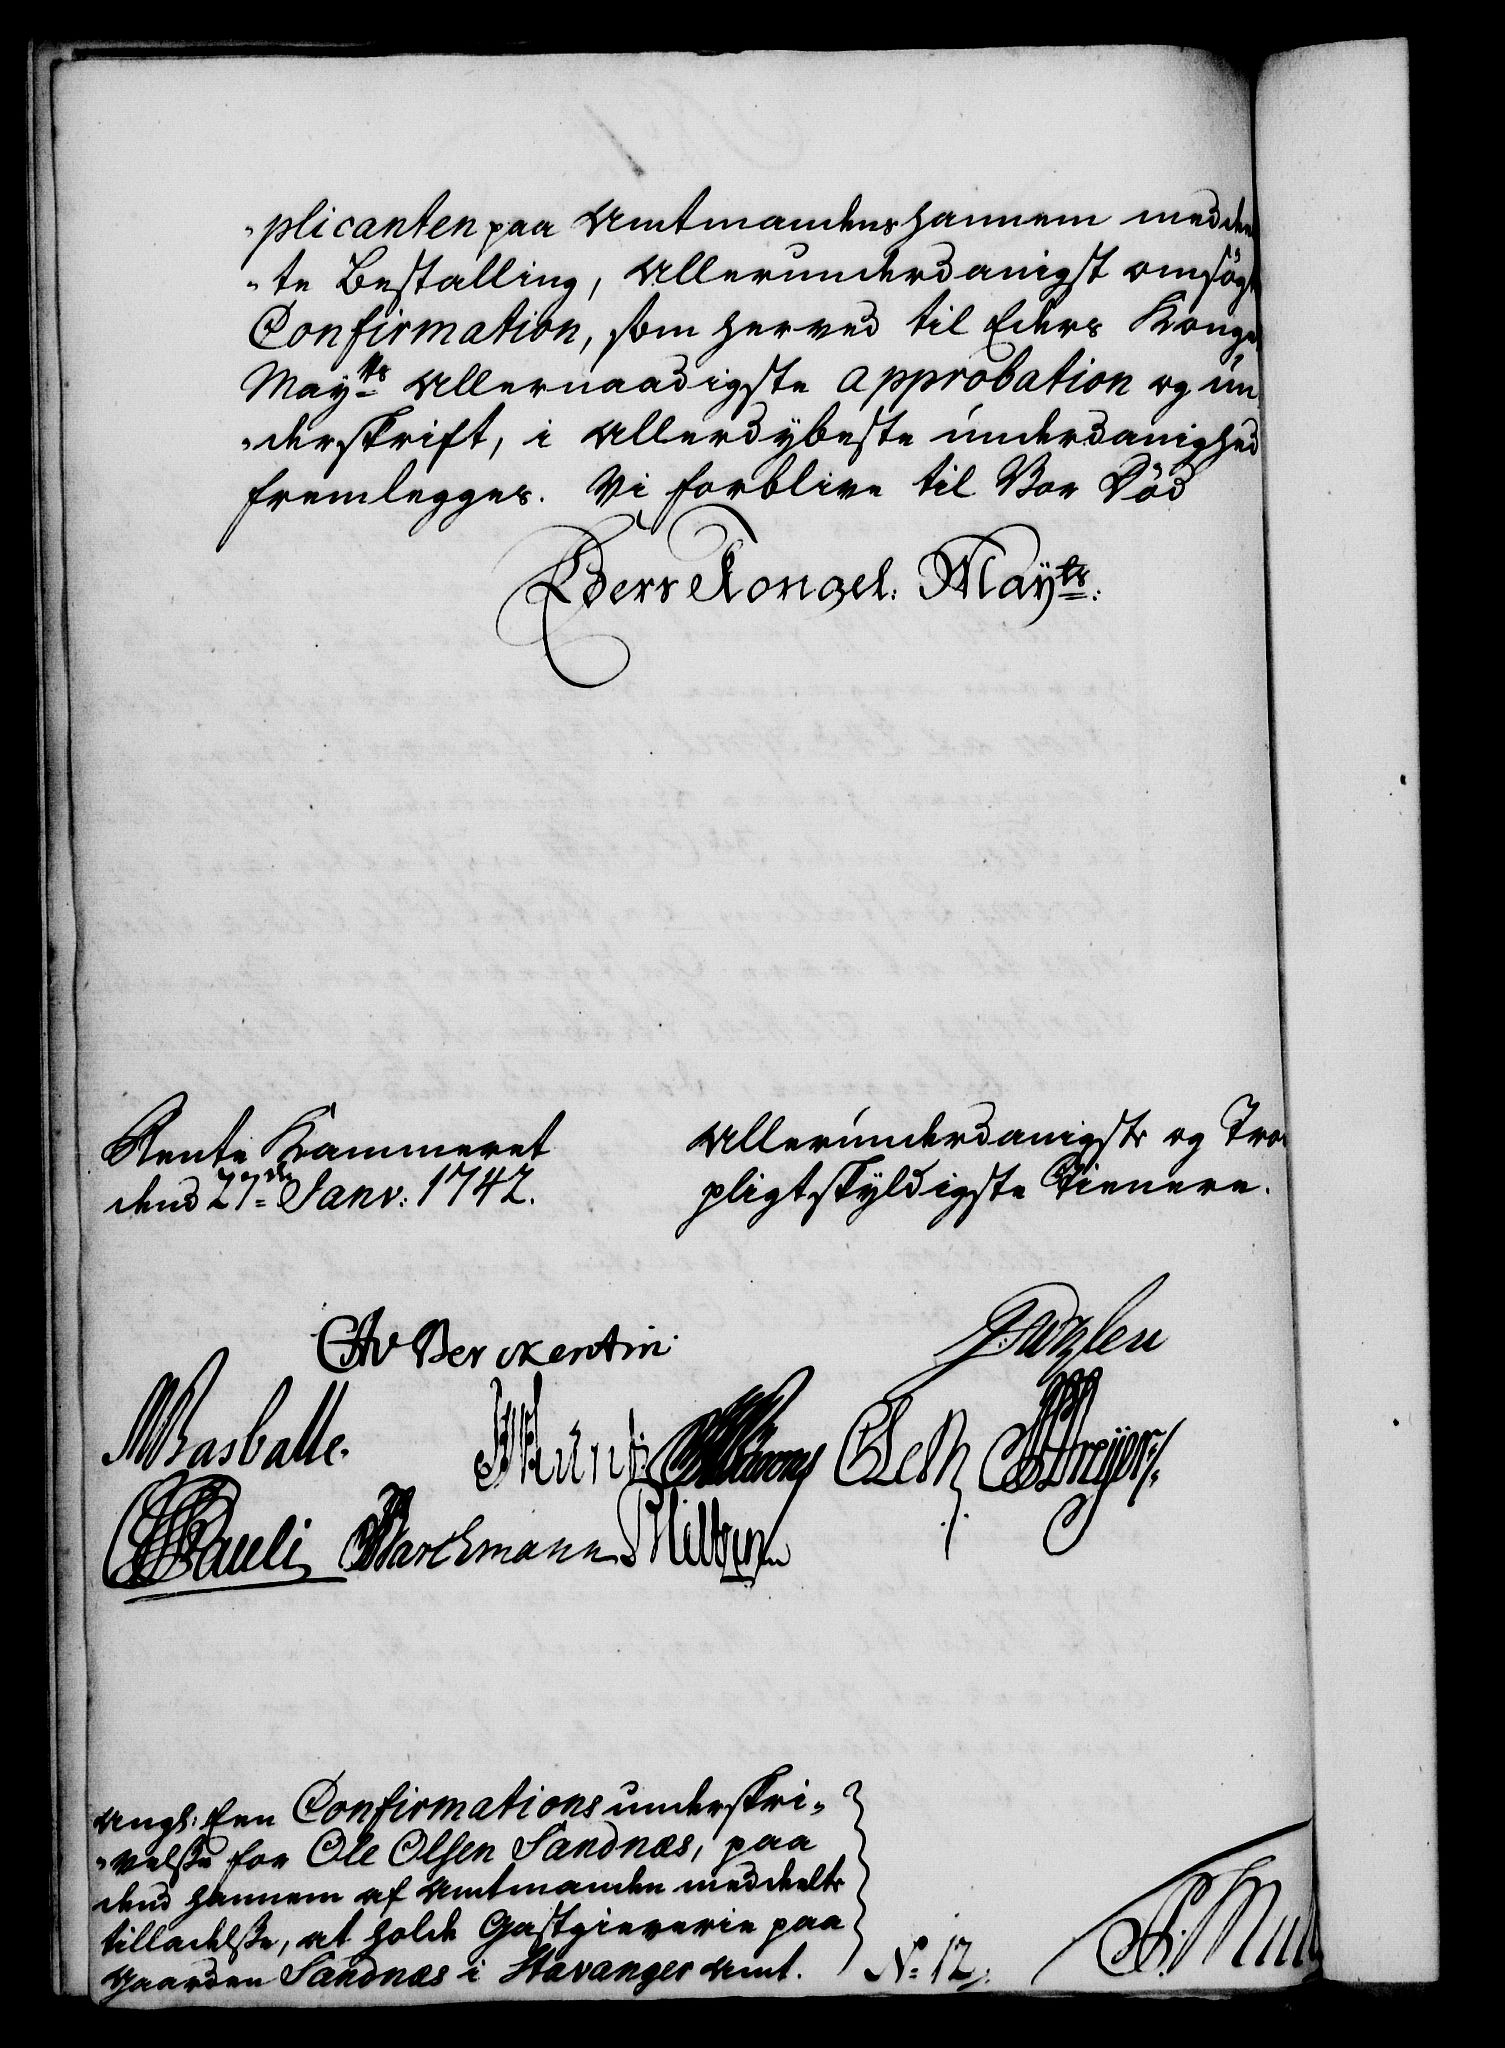 "plicanten paa Amtmandens hannem meddeel
"te Bestalling, Allerunderdanigst omsøgt
Confirmation, som herved til Eders Kongel
Mayts Allernaadigste approbation og un
"derskrift, i Allerdybeste underdanighed
fremlegges. Vi forblive til Vor Död
Eders Kongel: Mayts:
Rente Kammeret
dend 27de Janv: 1742.
Allerunderdanigste og Troe
pligtskyldigste Tienere.
CAv Berckentin
MRasballe.
CLeth
Pauli
Barchmann
Ang: Een Confirmations underskri"
"velse for Ole Olsen Sandnæs, paa
dend hannem af Amtmanden meddeelte
tilladelse, at holde Gastgieverie paa
Gaarden Sandnæs i Stavanger Amt.
N: 12.